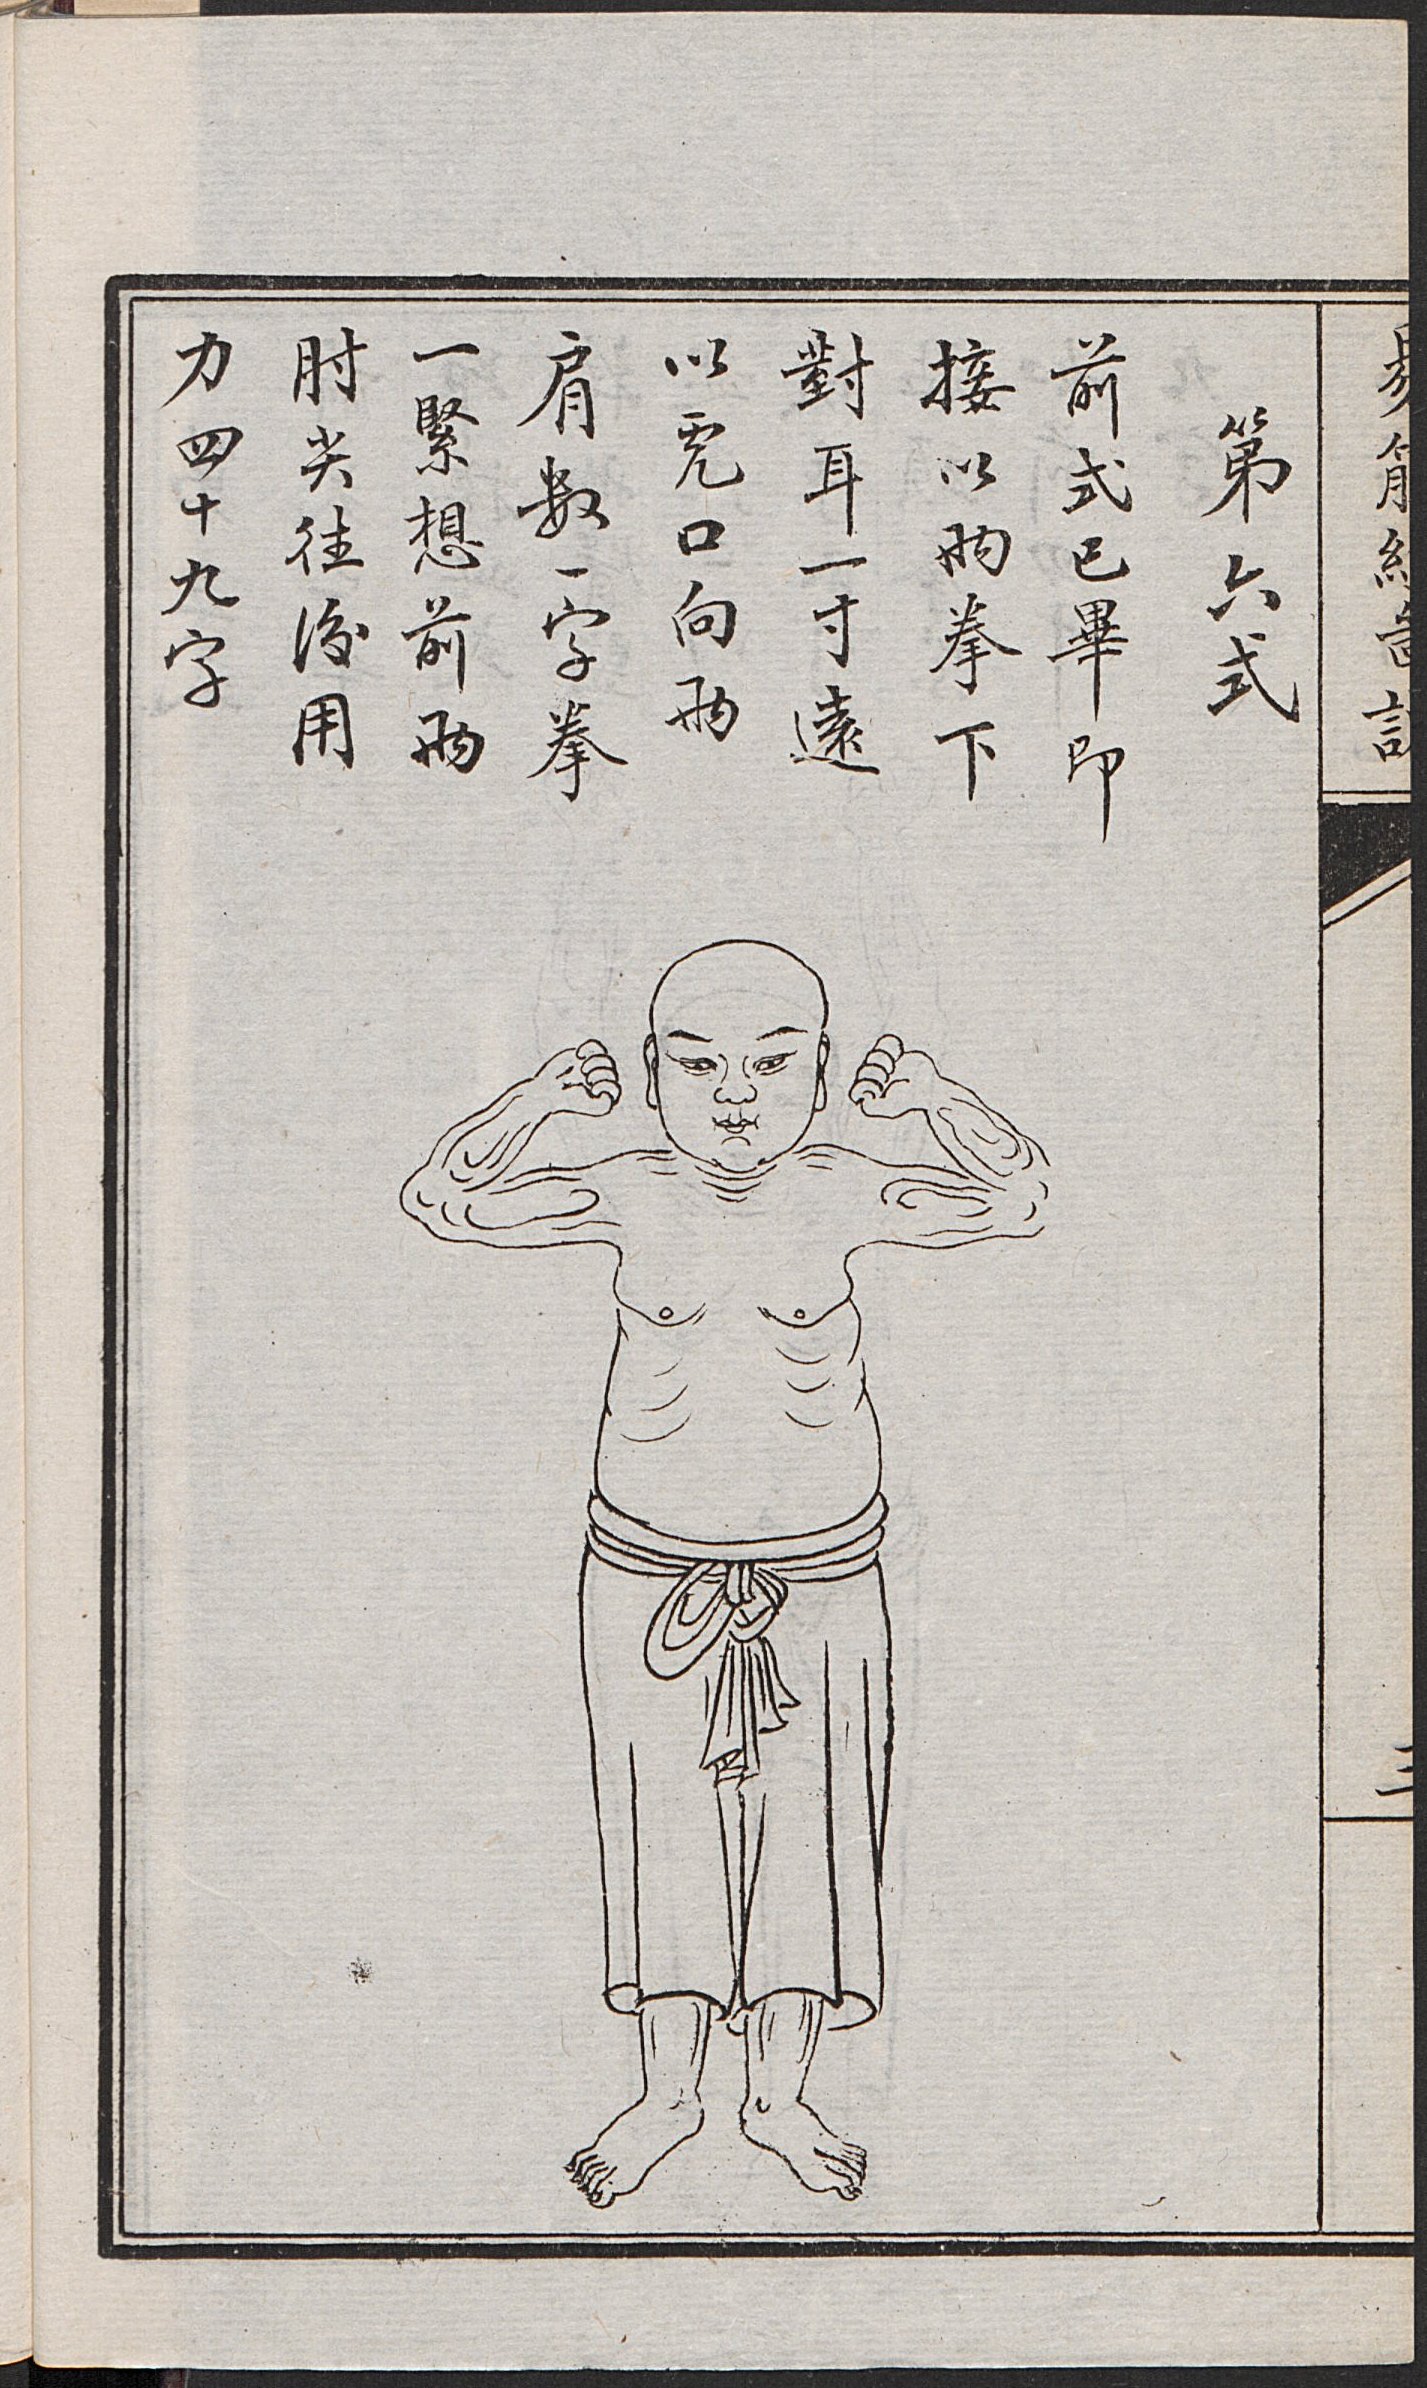 易筋經
第六式
前式已畢即
接以兩拳下
對耳一寸遠
以虎口向兩
肩數一字拳
一緊想前兩
肘尖往後用
力四十九字